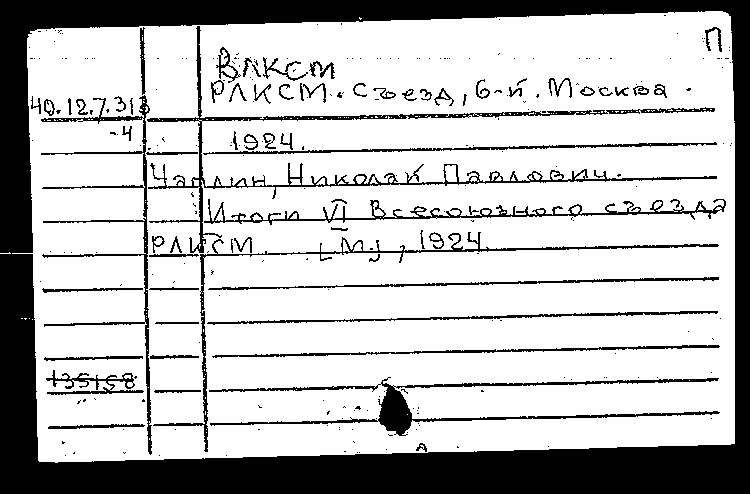 П
ВЛКСМ
РЛКСМ. Съезд, 6-й. Москва.
40.12.7.313
-4
1924.
Чаплин, Николай Павлович.
Итоги VI Всесоюзного съезда
РЛКСМ. [М], 1924.
135158